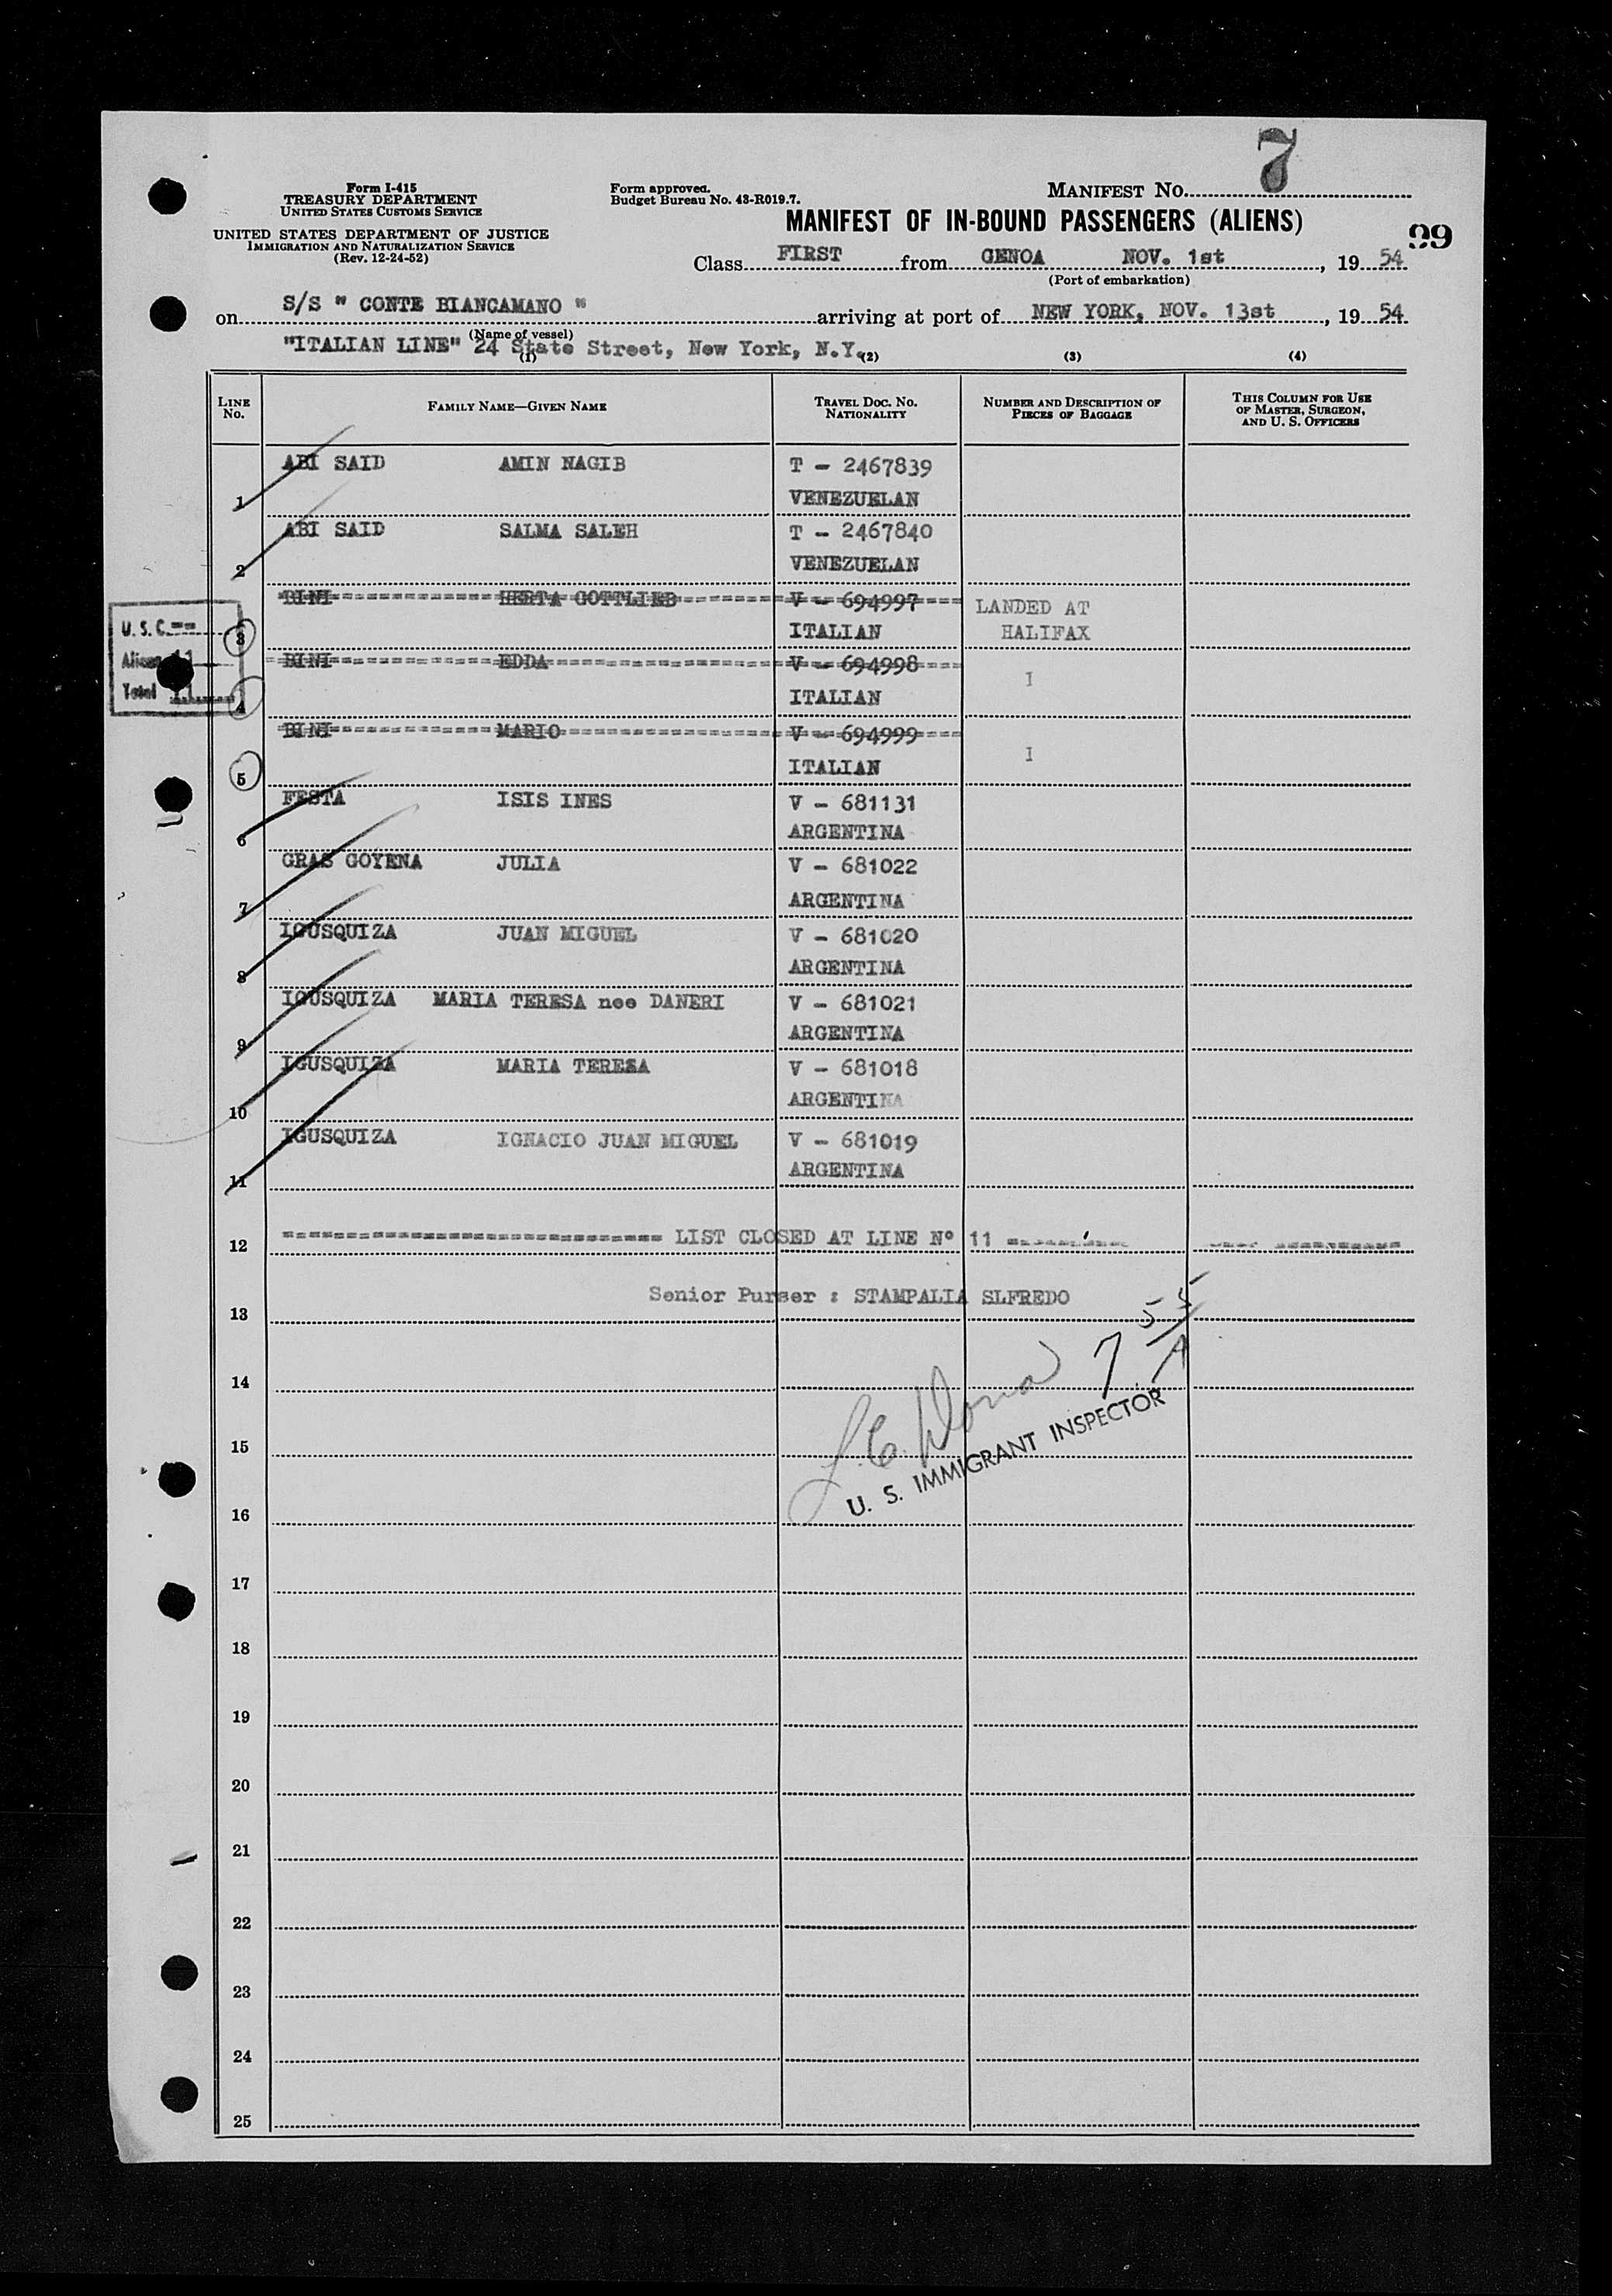 7
Form I-415
TREASURY DEPARTMENT
UNITED STATES CUSTOMS SERVICE
UNITED STATES DEPARTMENT OF JUSTICE
IMMIGRATION AND NATURALIZATION SERVICE
(Rev. 12-24-52)
Form approved.
Budget Bureau No. 43-R019.7.
MANIFEST NO.
MANIFEST OF IN-BOUND PASSENGERS (ALIENS)
99
Class FIRST from GENOA NOV. 1st, 19 54
(Port of embarkation)
on S/S " CONTE BIANCAMANO " arriving at port of NEW YORK, NOV. 13st, 19 54
(Name of vessel)
"ITALIAN LINE" 24 State Street, New York, N.Y.
(1) (2) (3) (4)
LINE NO. FAMILY NAME—GIVEN NAME TRAVEL DOC. NO. NATIONALITY NUMBER AND DESCRIPTION OF PIECES OF BAGGAGE THIS COLUMN FOR USE OF MASTER, SURGEON, AND U. S. OFFICERS
ABI SAID AMIN NAGIB T - 2467839
1 VENEZUELAN
ABI SAID SALMA SALEH T - 2467840
2 VENEZUELAN
BINI HERTA GOTTLIEB V - 694997 LANDED AT
3 ITALIAN HALIFAX
BINI EDDA V - 694998
4 ITALIAN I
BINI MARIO V - 694999
5 ITALIAN I
U. S. C. --
Aliens 11
Total 11
FESTA ISIS INES V - 681131
6 ARGENTINA
GRAS GOYENA JULIA V - 681022
7 ARGENTINA
IGUSQUIZA JUAN MIGUEL V - 681020
8 ARGENTINA
IGUSQUIZA MARIA TERESA nee DANERI V - 681021
9 ARGENTINA
IGUSQUIZA MARIA TERESA V - 681018
10 ARGENTINA
IGUSQUIZA IGNACIO JUAN MIGUEL V - 681019
11 ARGENTINA
12 LIST CLOSED AT LINE Nº 11
Senior Purser : STAMPALIA SLFREDO
13
7 55/A
14
15
U. S. IMMIGRANT INSPECTOR
16
17
18
19
20
21
22
23
24
25